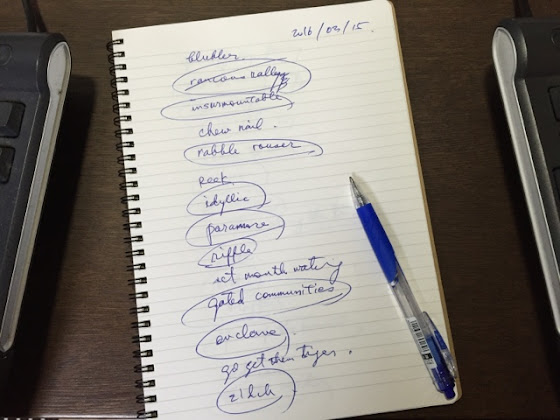 2016/03/15.
blubber.
raucous rally
insurmountable
chew nail.
rabble rouser
reek
idyllic
paramore
riffle
month watering
gated communities
enclave
go get them tiger.
zilch